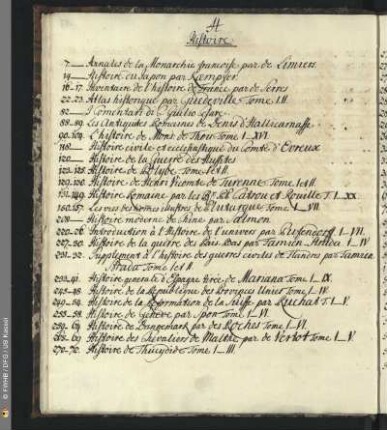 H
Histoire
7 Annales de la Monarchie françoise par de Limiers
14 Histoire du Japon par Kæmpfer
16-17 Inventaire de l'histoire de France par de Serres
22-23 Atlas historique par Guedeville Tome I II
82 I Comentari di Giulio Cesare
88-89 Les Antiquités Romaines de Denis d'Hallicarnasse
90-104 L'histoire de Mons. de Thou Tome I_XVI
118 Histoire civile et ecclesiastique du Comté d'Evreux
120 Histoire de la Guerre des Hussites
Histoire de Polybe Tome I et II
Histoire de Henri Vicomte de Turenne Tome I et II
Histoire Romaine par les Catrou et Rouillé T. I_XX
Les vies des hommes illustres de Plutarque Tome I_VII
Histoire moderne de Chine par Salmon
220-26 Introduction à l'Histoire de l'univers par Pufendorf I_VII
227-30 Histoire de la guerre des Païs Bas par Famien Strada I_IV
231-32 Supplement à l'histoire des guerres civiles de Flandres par Famien
Strada Tome I et II
233-41 Histoire generale d'Espagne tirée de Mariana Tom I_IX
245-48 Histoire de la Republique des Provinces Unies Tome I_IV
249-54 Histoire de la Reformation de la Suisse par Ruchat T. I_V
255-58 Histoire de Geneve par Spon Tome I_VI
259-64 Histoire de Dannemark par des Roches Tome I_VI
265-69 Histoire des Chevaliers de Malthe par de Vertot Tome I_V
270-72 Histoire de Thucydide Tome I_III
© FWHB / DFG / UB Kassel